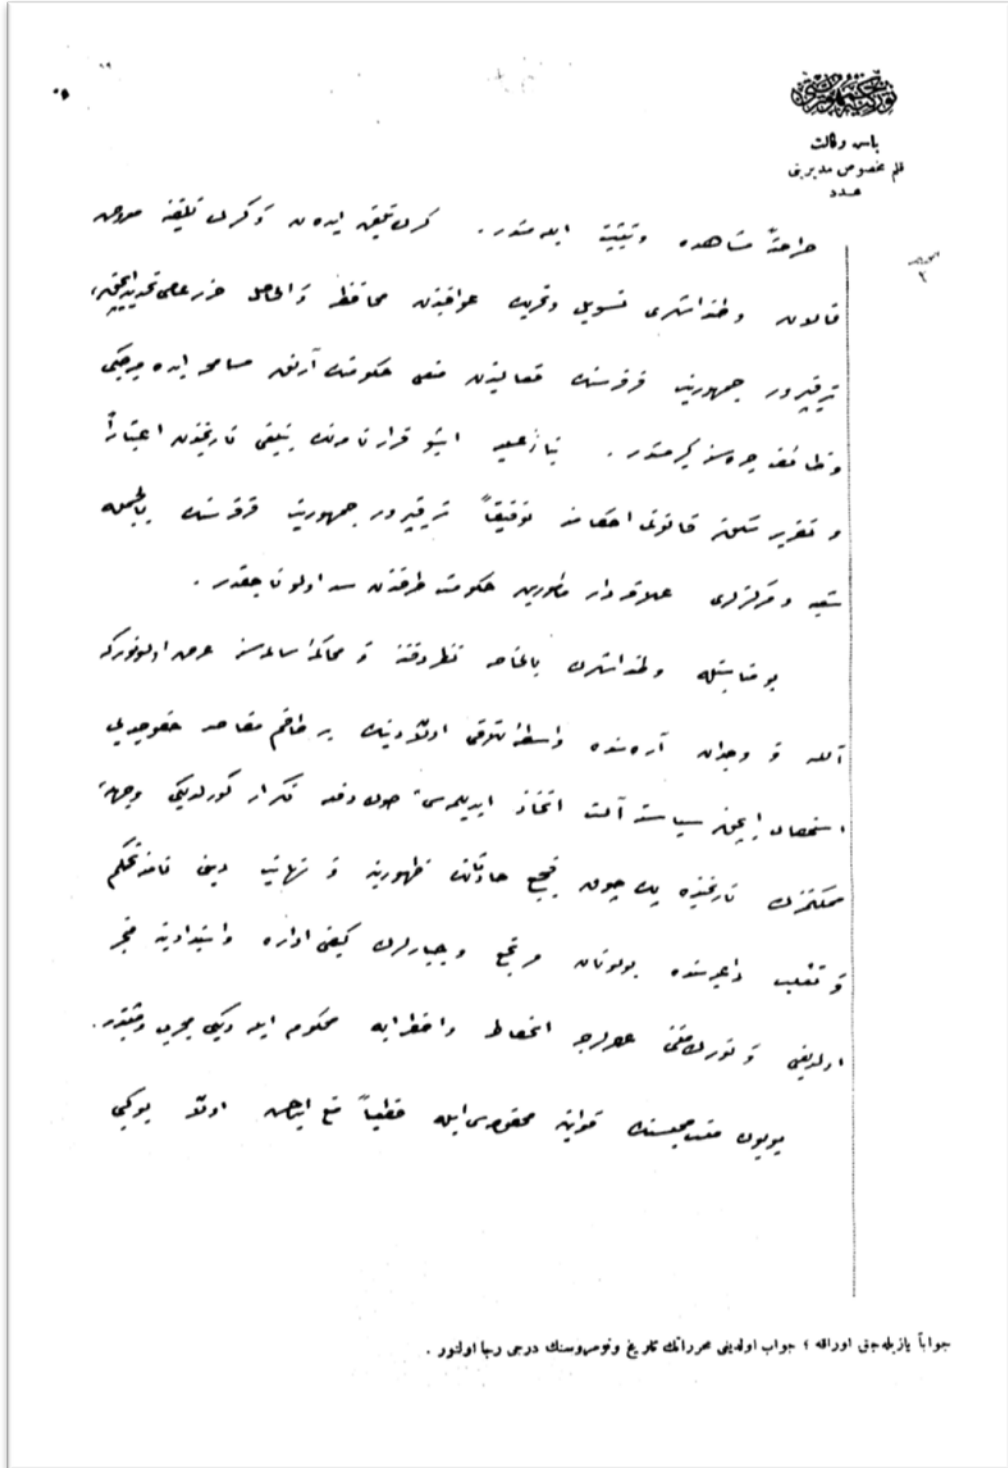 توركيه جمهوريتى
باش وكالت
قلم مخصوص مديريتى
عدد
٢
صراحةً مشاهده و تثبيت ايله مشدر . كرك تلقين ايدن و كرك تلقينه معروض
قالان وطنداشلرى تسويل و تحريك عواقبندن محافظه و الحاصل
ترقيپرور جمهوريت فرقه سنك فعاليتدن منعى حكومتك آرتق مسامحه ايده ميه جكى
وظائف جمله سنه كيرمشدر . بناءً عليه اشبو قرارنامه نك تبليغى تاريخندن اعتباراً
و تقرير سكون قانونى احكامنه توفيقاً ترقيپرور جمهوريت فرقه سنك بالجمله
شعبه و مركزلرى علاقه دار مأمورين حكومت طرفندن سد اولوناجقدر .
بو مناسبتله وطنداشلرك بالخاصه نظر دقت و محاكمۀ سالمه سنه عرض اولونوركه
آلله و وجدان آره سنده واسطۀ تلاقى اولان دينك بر طاقم مقاصد خصوصيه يى
استحصال ايچون سياسته آلت اتخاذ ايديلمسى صوك دفعه تكرار كورلديكى وجهله
مملكتمزك تاريخنده پك چوق فجيع حادثاتك ظهورينه و نهايت دين نامنه تحكم
و تغلب داعيه سنده بولونان مرتجع و جبارلرك كيفى اداره و استبدادينه منجر
اولديغى و تورك ملتنى عصرلرجه انحطاط و اضطرابه محكوم ايله ديكى مجرب و مثبتدر .
بويوك ملت مجلسنك قوانين مخصوصه سى ايله قطعياً منع ايتمش اولان بو كبى
جواباً يازيله جق اوراقه ؛ جواب اولديغى محرراتك تاريخ ونومروسنك درجى رجا اولنور .